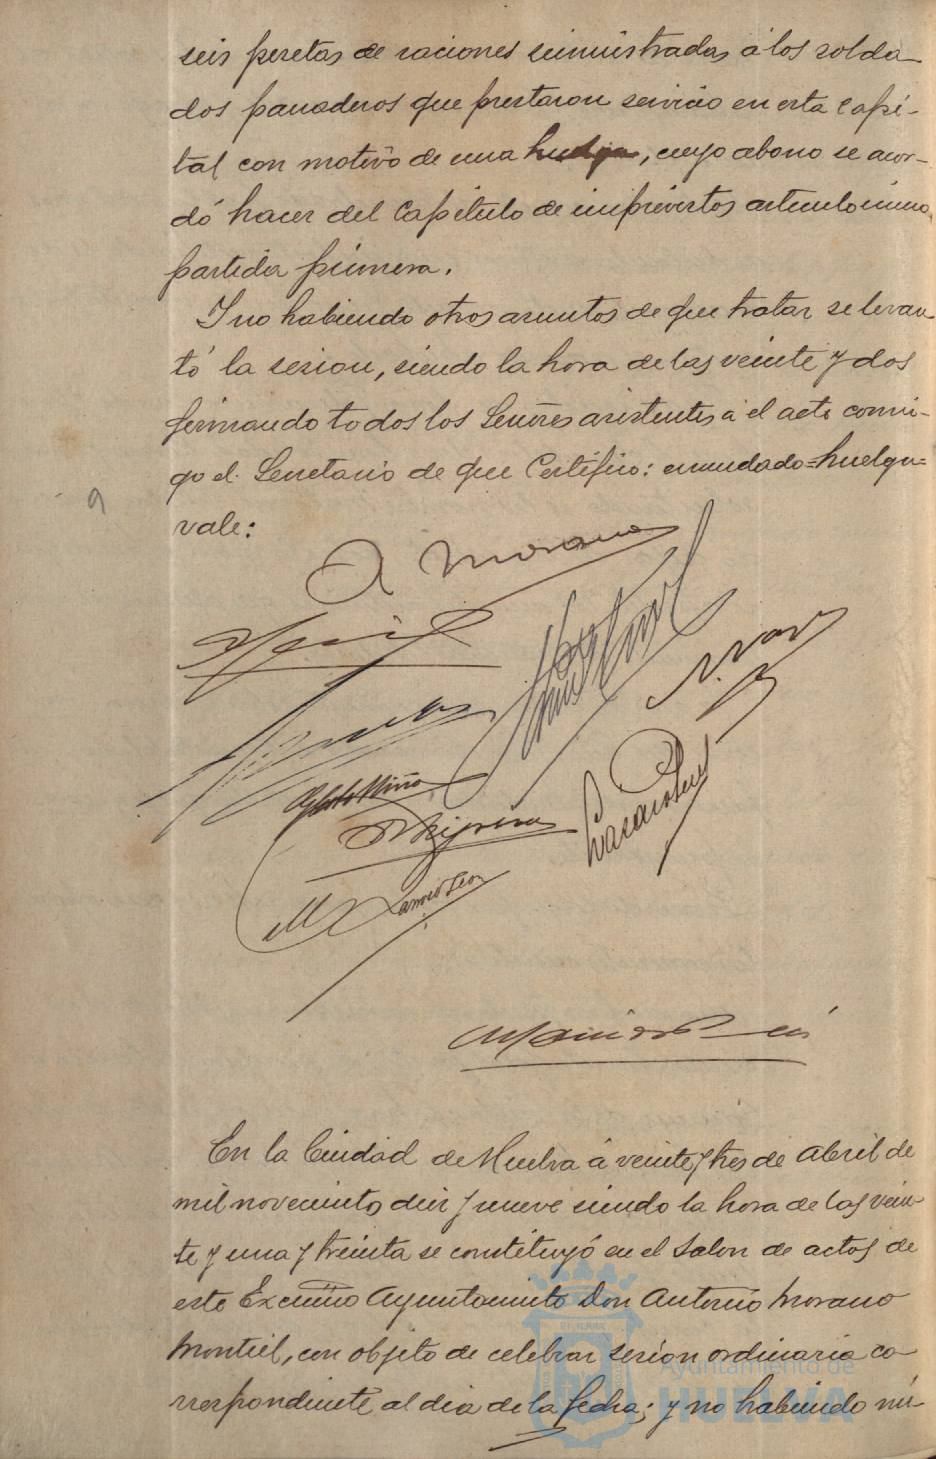 seis pesetas de raciones suministradas á los solda-
dos panaderos que prestaron servicio en esta Capi-
tal con motivo de una huelga, cuyo abono se acor-
dó hacer del Capitulo de imprevistos articulo unico
partida primera.
Y no habiendo otros asuntos de que tratar se levan
tó la sesion, siendo la hora de las veinte y dos
firmando todos los Señores asistentes á el acto conmi-
go el Secretario de que Certifico: enmendado=huelga=
vale:
A Morano
Alberto Miño
M Ramos Leon
En la Ciudad de Huelva á veinte y tres de Abril de
mil novecientos diez y nueve siendo la hora de las vein-
te y una y treinta se constituyó en el Salon de actos de
este Excmo Ayuntamiento Don Antonio Morano
Montiel, con objeto de celebrar sesion ordinaria co-
rrespondiente al dia de la fecha; y no habiendo nú-
Ayuntamiento de
HUELVA
9